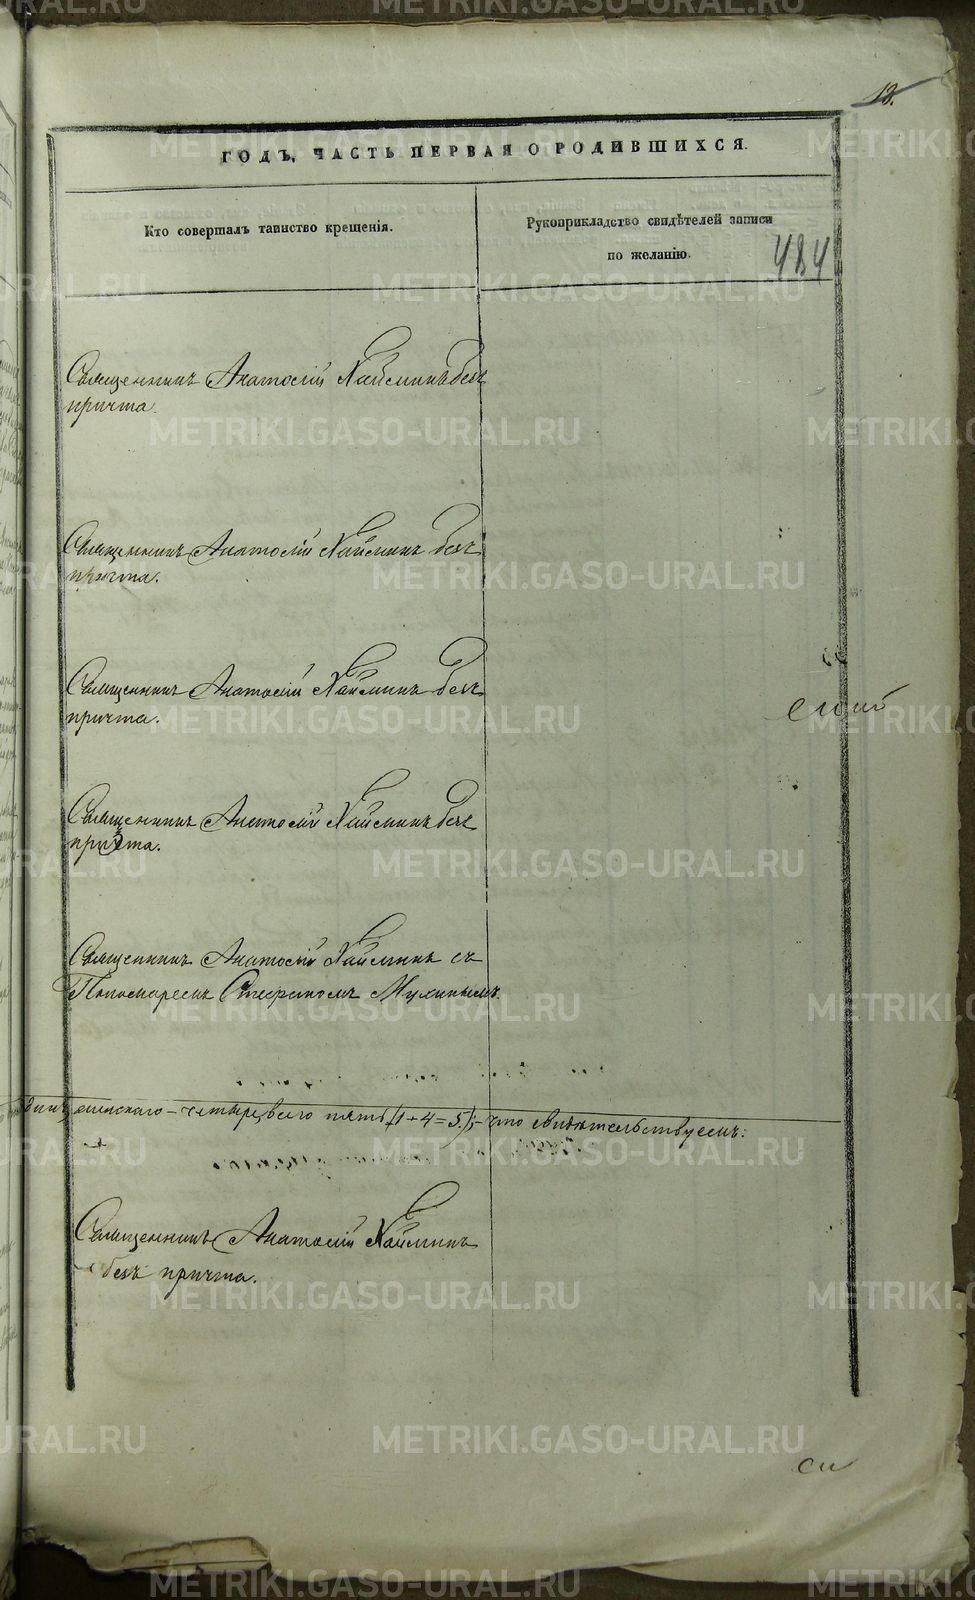 13.
ГОДЪ, ЧАСТЬ ПЕРВАЯ О РОДИВШИХСЯ.
Кто совершалъ таинство крещенія.
Рукоприкладство свидѣтелей записи
по желанію.
484
Священникъ Анатолій Хайминъ безъ
причта.
Священникъ Анатолій Хайминъ безъ
причта.
Священникъ Анатолій Хайминъ безъ
причта.
Священникъ Анатолій Хайминъ безъ
причта.
Священникъ Анатолій Хайминъ съ
Пономаремъ Стефаномъ Мухинымъ.
четыре, всего пять (1+4=5);- что свидѣтельствуемъ:
Священникъ Анатолій Хайминъ
безъ причта.
METRIKI.GASO-URAL.RU